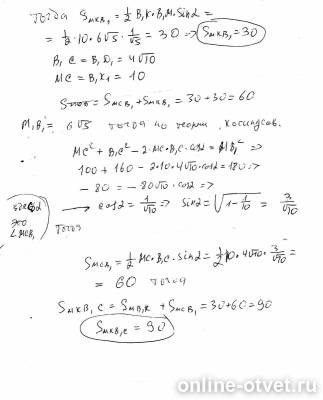 тогда S_MKB₁ = 1/2 B₁K · B₁M · sin2 =
= 1/2 · 10 · 6√5 · 1/√5 = 30 ⇒ S_MKB₁ = 30
B₁C = B₁D₁ = 4√10
MC = B₁K₁ = 10
= S_MCB₁ + S_MKB₁ = 30 + 30 = 60
M₁B₁ = 6√5 тогда по теореме косинусов.
MC² + B₁C² - 2 · MC · B₁C · cos2 = MB₁² ⇒
100 + 160 - 2 · 10 · 4√10 · cos2 = 180 ⇒
- 80 = - 80√10 · cos2 ⇒
∠MCB₁
→ cos2 = 1/√10 ⇒ sin2 = √(1 - 1/10) = 3/√10
тогда
S_MCB₁ = 1/2 MC · B₁C · sin2 = 1/2 · 10 · 4√10 · 3/√10 =
= 60 тогда
S_MKB₁C = S_MB₁K + S_MCB₁ = 30 + 60 = 90
S_MKB₁C = 90
online-otvet.ru